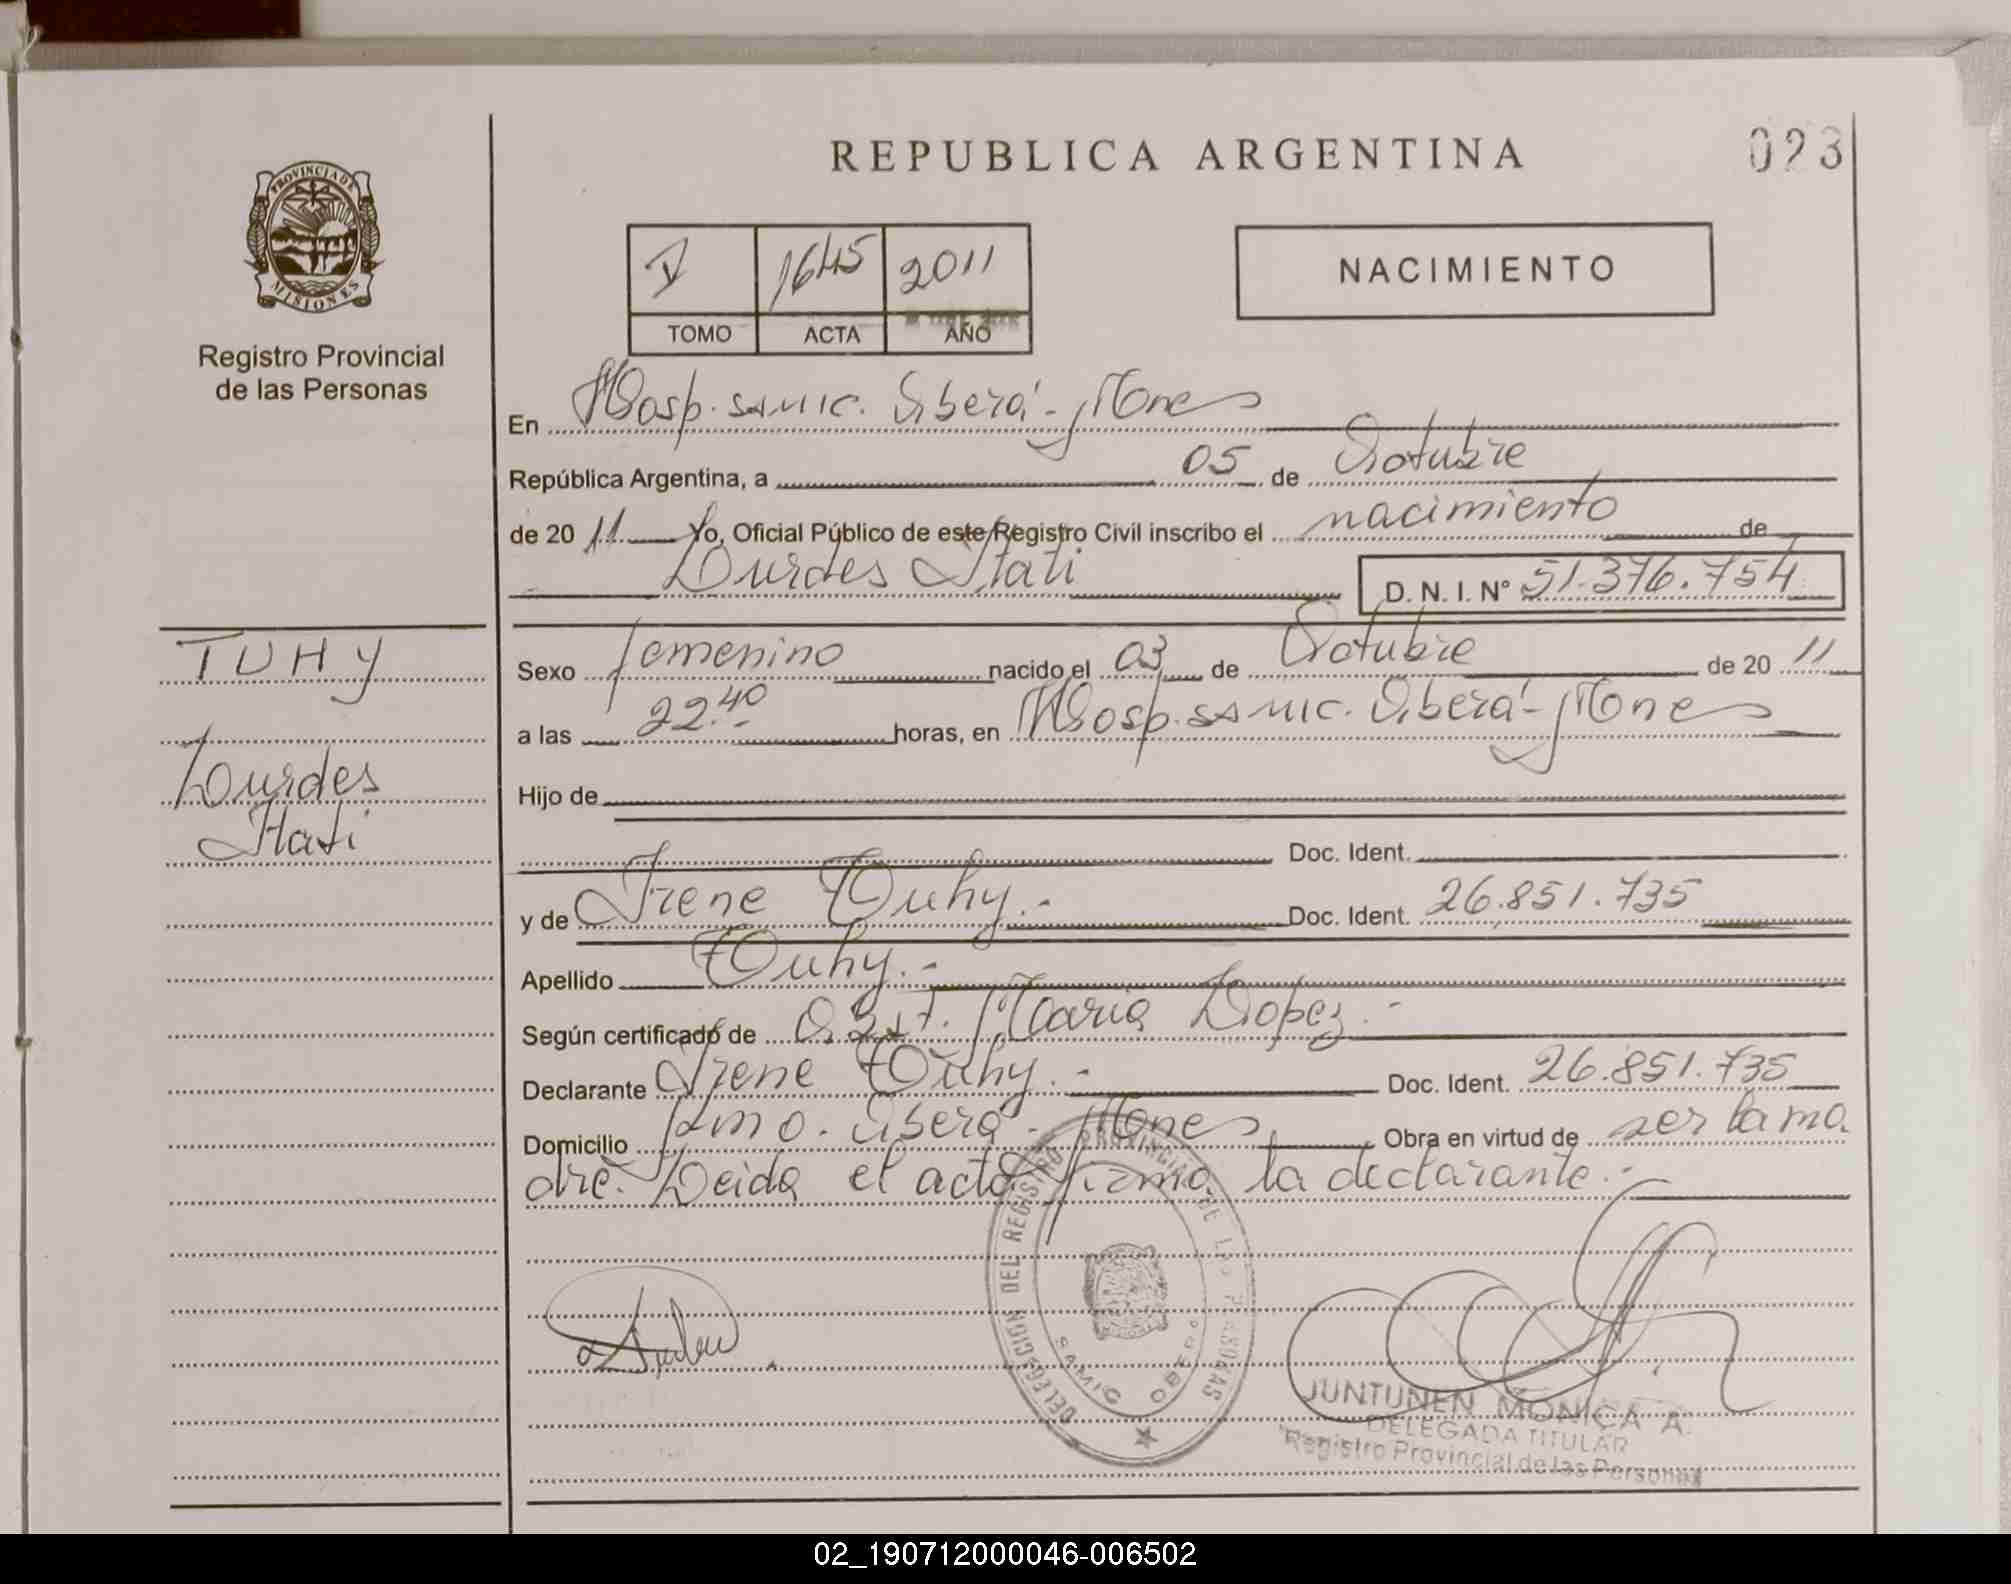 REPUBLICA ARGENTINA
023
PROVINCIA DE
MISIONES
Registro Provincial
de las Personas
V 1645 2011
TOMO ACTA AÑO
NACIMIENTO
En Hosp. SAMIC. Oberá - Mnes
República Argentina, a 05 de Octubre
de 20 11 Yo, Oficial Público de este Registro Civil inscribo el nacimiento de
Lourdes Itati D. N. I. N° 51.376.754
TUHY
Lourdes
Itati
Sexo femenino nacido el 03 de Octubre de 20 11
a las 22.40 horas, en Hosp. SAMIC. Oberá - Mnes
Hijo de
Doc. Ident.
y de Irene Tuhy.- Doc. Ident. 26.851.735
Apellido Tuhy.-
Según certificado de Obst. Maria Lopez.-
Declarante Irene Tuhy.- Doc. Ident. 26.851.735
Domicilio Oberá - Mnes Obra en virtud de ser la ma
dre. Leida el acta firma la declarante.-
DELEGACION DEL REGISTRO PROVINCIAL DE LAS PERSONAS
SAMIC OBERA
JUNTUNEN MONICA A.
DELEGADA TITULAR
Registro Provincial de las Personas
02_190712000046-006502